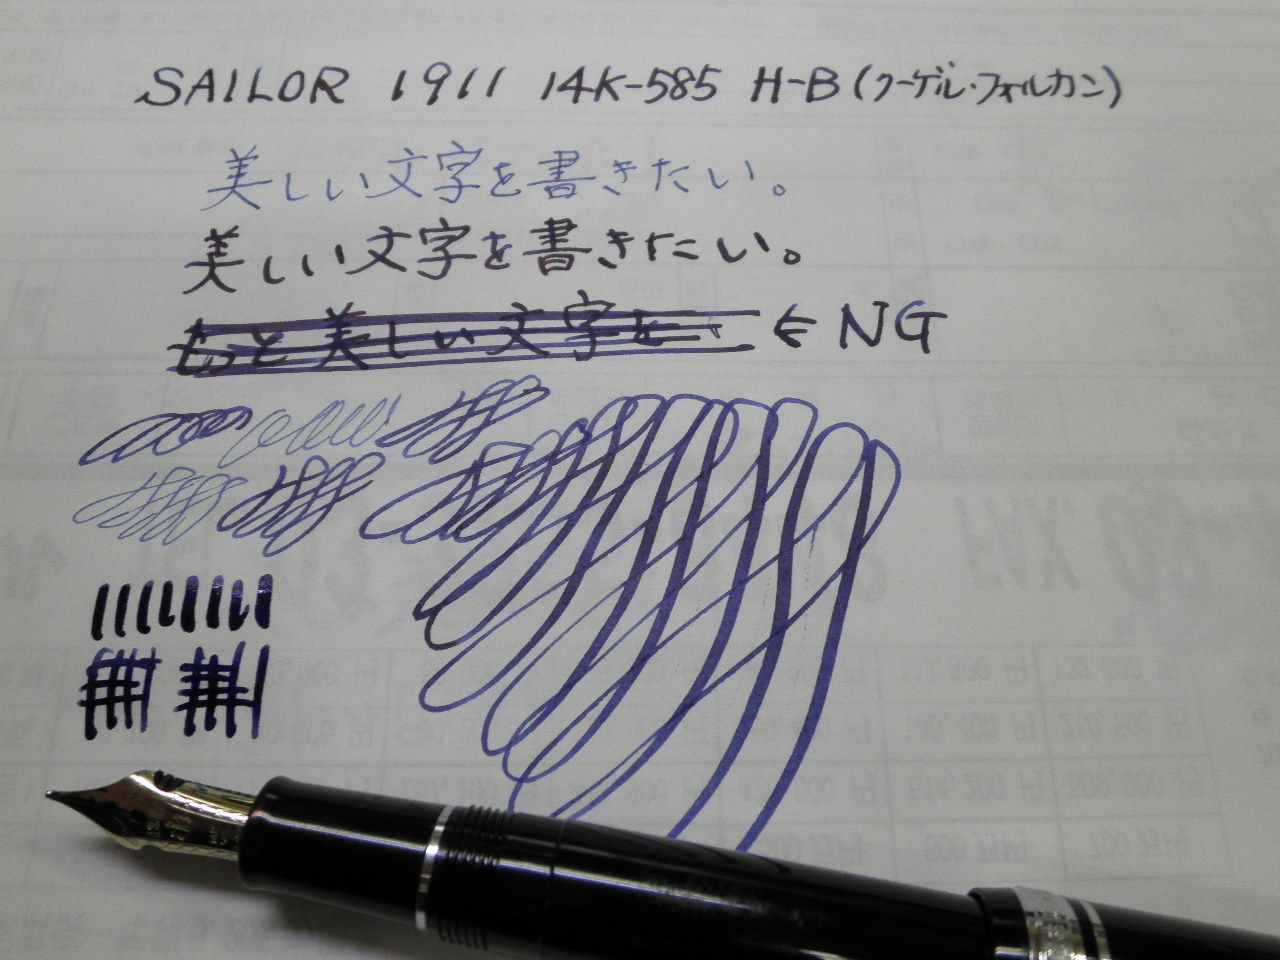 SAILOR 1911 14K-585 H-B (クーゲル・フォルカン)
美しい文字を書きたい。
美しい文字を書きたい。
もっと美しい文字を ← NG